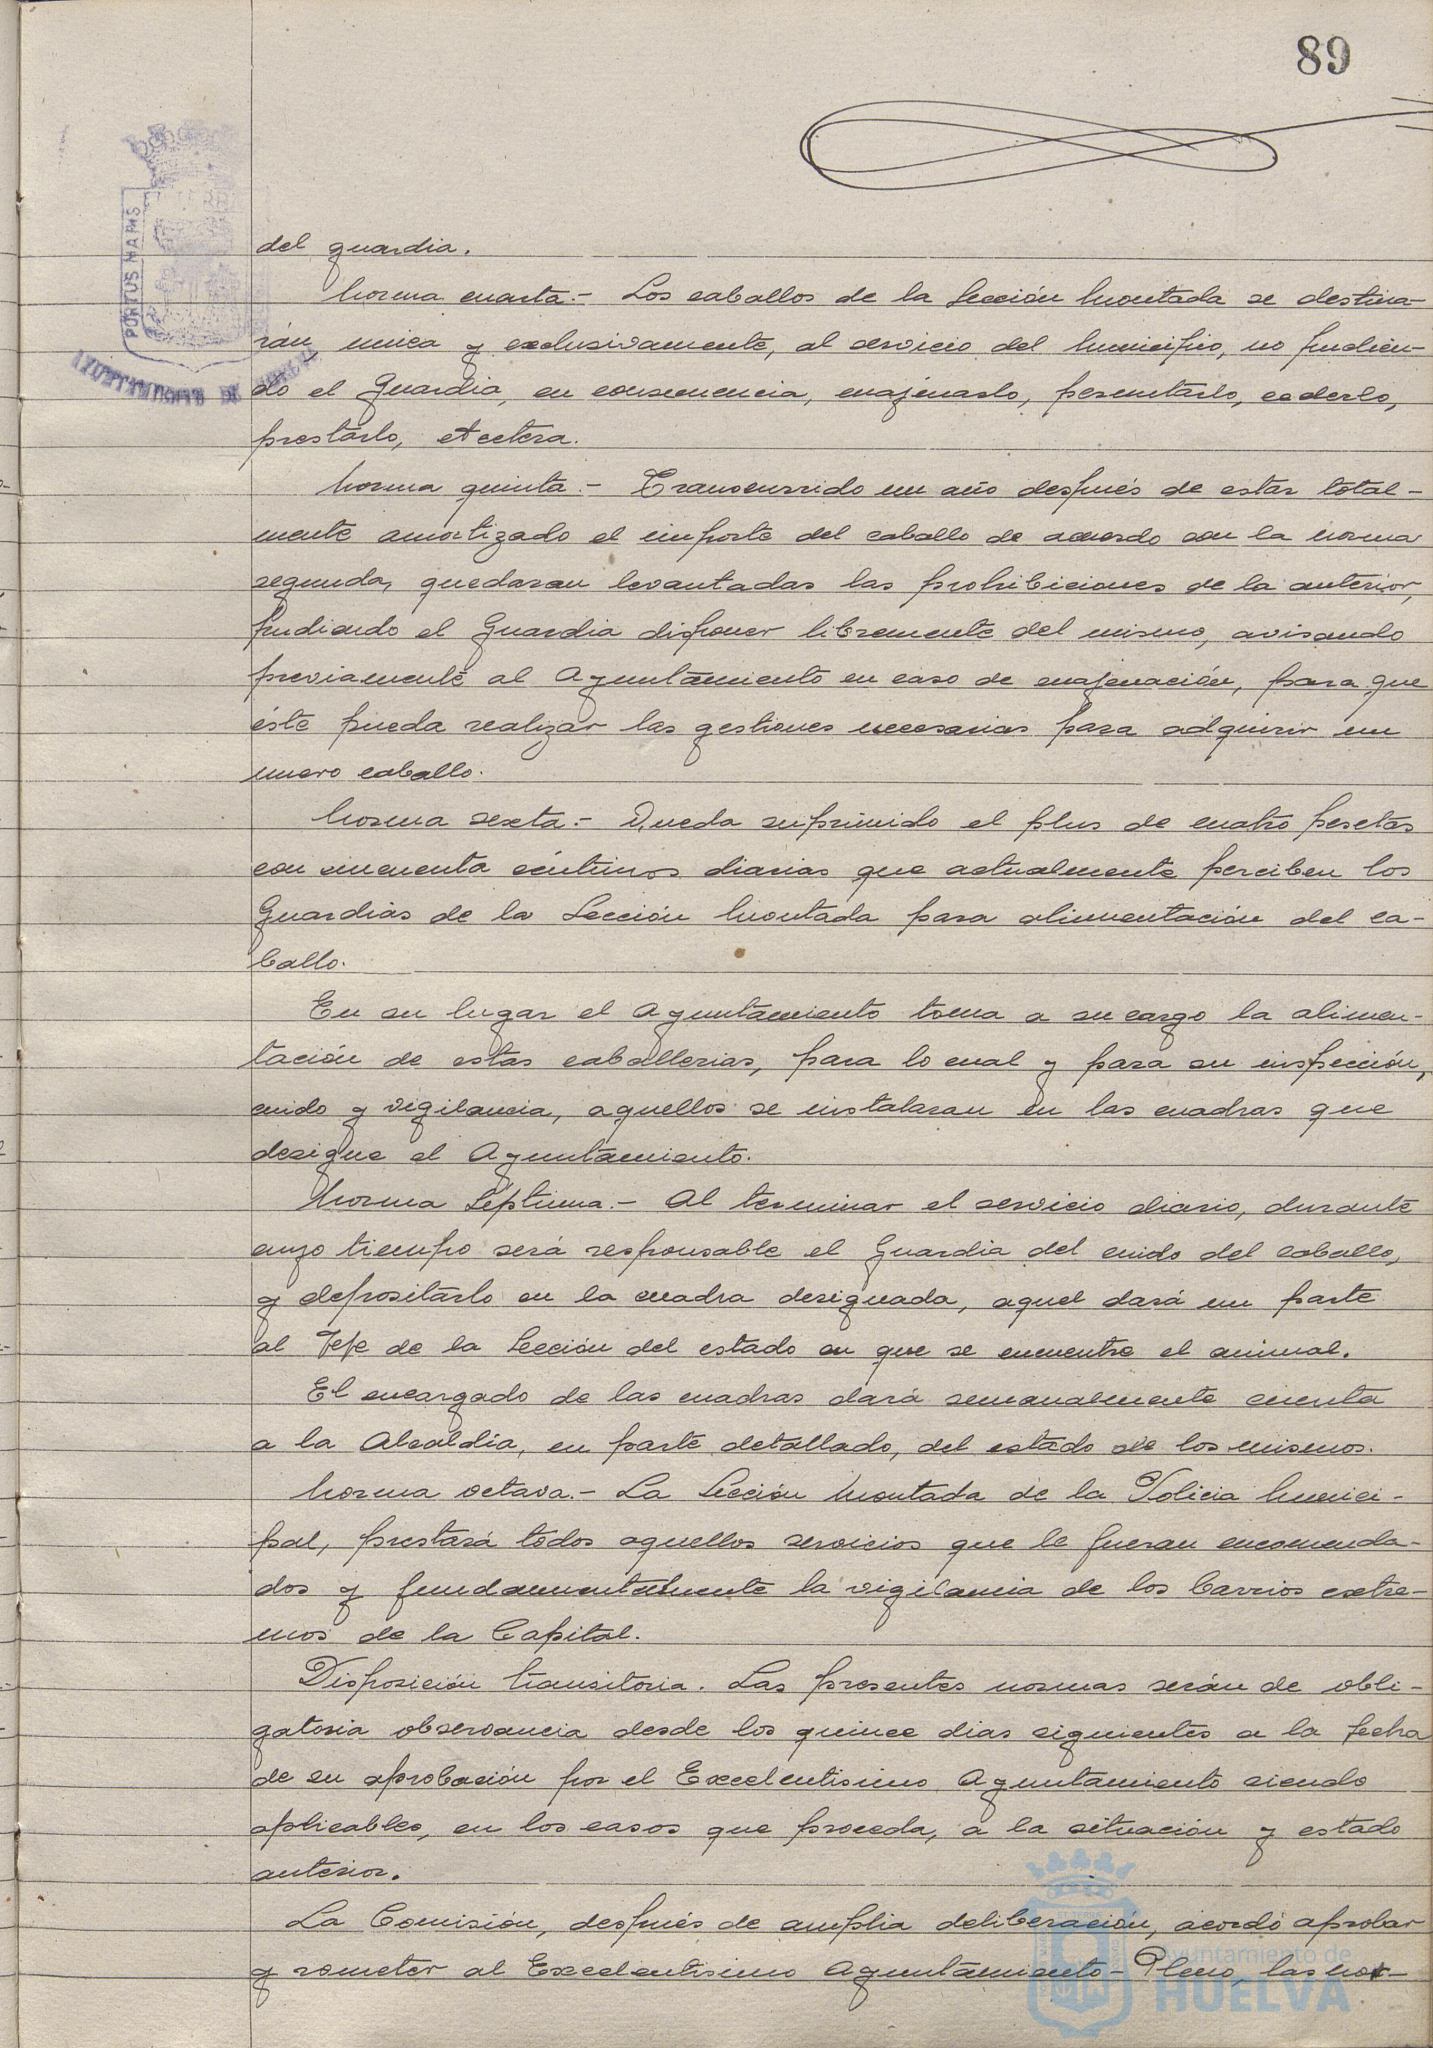 89
PORTUS MARIS
AYUNTAMIENTO DE HUELVA
del guardia.
Norma cuarta.- Los caballos de la Sección Montada se destina-
rán unica y exclusivamente, al servicio del Municipio, no pudien-
do el Guardia, en consecuencia, enajenarlo, permutarlo, cederlo,
prestarlo, etcetera.
Norma quinta.- Transcurrido un año después de estar total-
mente amortizado el importe del caballo de acuerdo con la norma
segunda, quedaran levantadas las prohibiciones de la anterior,
pudiendo el Guardia disponer libremente del mismo, avisando
previamente al Ayuntamiento en caso de enajenación, para que
éste pueda realizar las gestiones necesarias para adquirir un
nuevo caballo.
Norma sexta.- Queda suprimido el plus de cuatro pesetas
con cincuenta céntimos diarias que actualmente perciben los
Guardias de la Sección Montada para alimentación del ca-
ballo.
En su lugar el Ayuntamiento toma a su cargo la alimen-
tación de estas caballerias, para lo cual y para su inspección,
cuido y vigilancia, aquellos se instalaran en las cuadras que
designe el Ayuntamiento.
Norma Séptima.- Al terminar el servicio diario, durante
cuyo tiempo será responsable el Guardia del cuido del caballo,
y depositarlo en la cuadra designada, aquel dará un parte
al Jefe de la Sección del estado en que se encuentre el animal.
El encargado de las cuadras dará semanalmente cuenta
a la Alcaldía, en parte detallado, del estado de los mismos.
Norma octava.- La Sección Montada de la Policia Munici-
pal, prestará todos aquellos servicios que le fueran encomenda-
dos y fundamentalmente la vigilancia de los barrios extre-
mos de la Capital.
Disposición transitoria. Las presentes normas serán de obli-
gatoria observancia desde los quince dias siguientes a la fecha
de su aprobación por el Excelentisimo Ayuntamiento siendo
aplicables, en los casos que proceda, a la situación y estado
anterior.
La Comisión, después de amplia deliberación, acordó aprobar
y someter al Excelentisimo Ayuntamiento-Pleno, las nor-
Ayuntamiento de
HUELVA